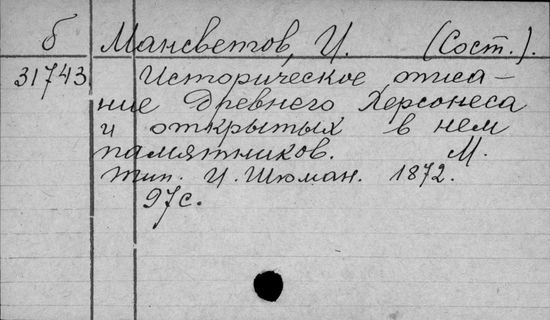 б Мансветов, И. (Сост.).
31743 Историческое описа-
ние древнего Херсонеса
и открытых в нем
памятников. М.
тип. И. Шюман. 1872.
97с.